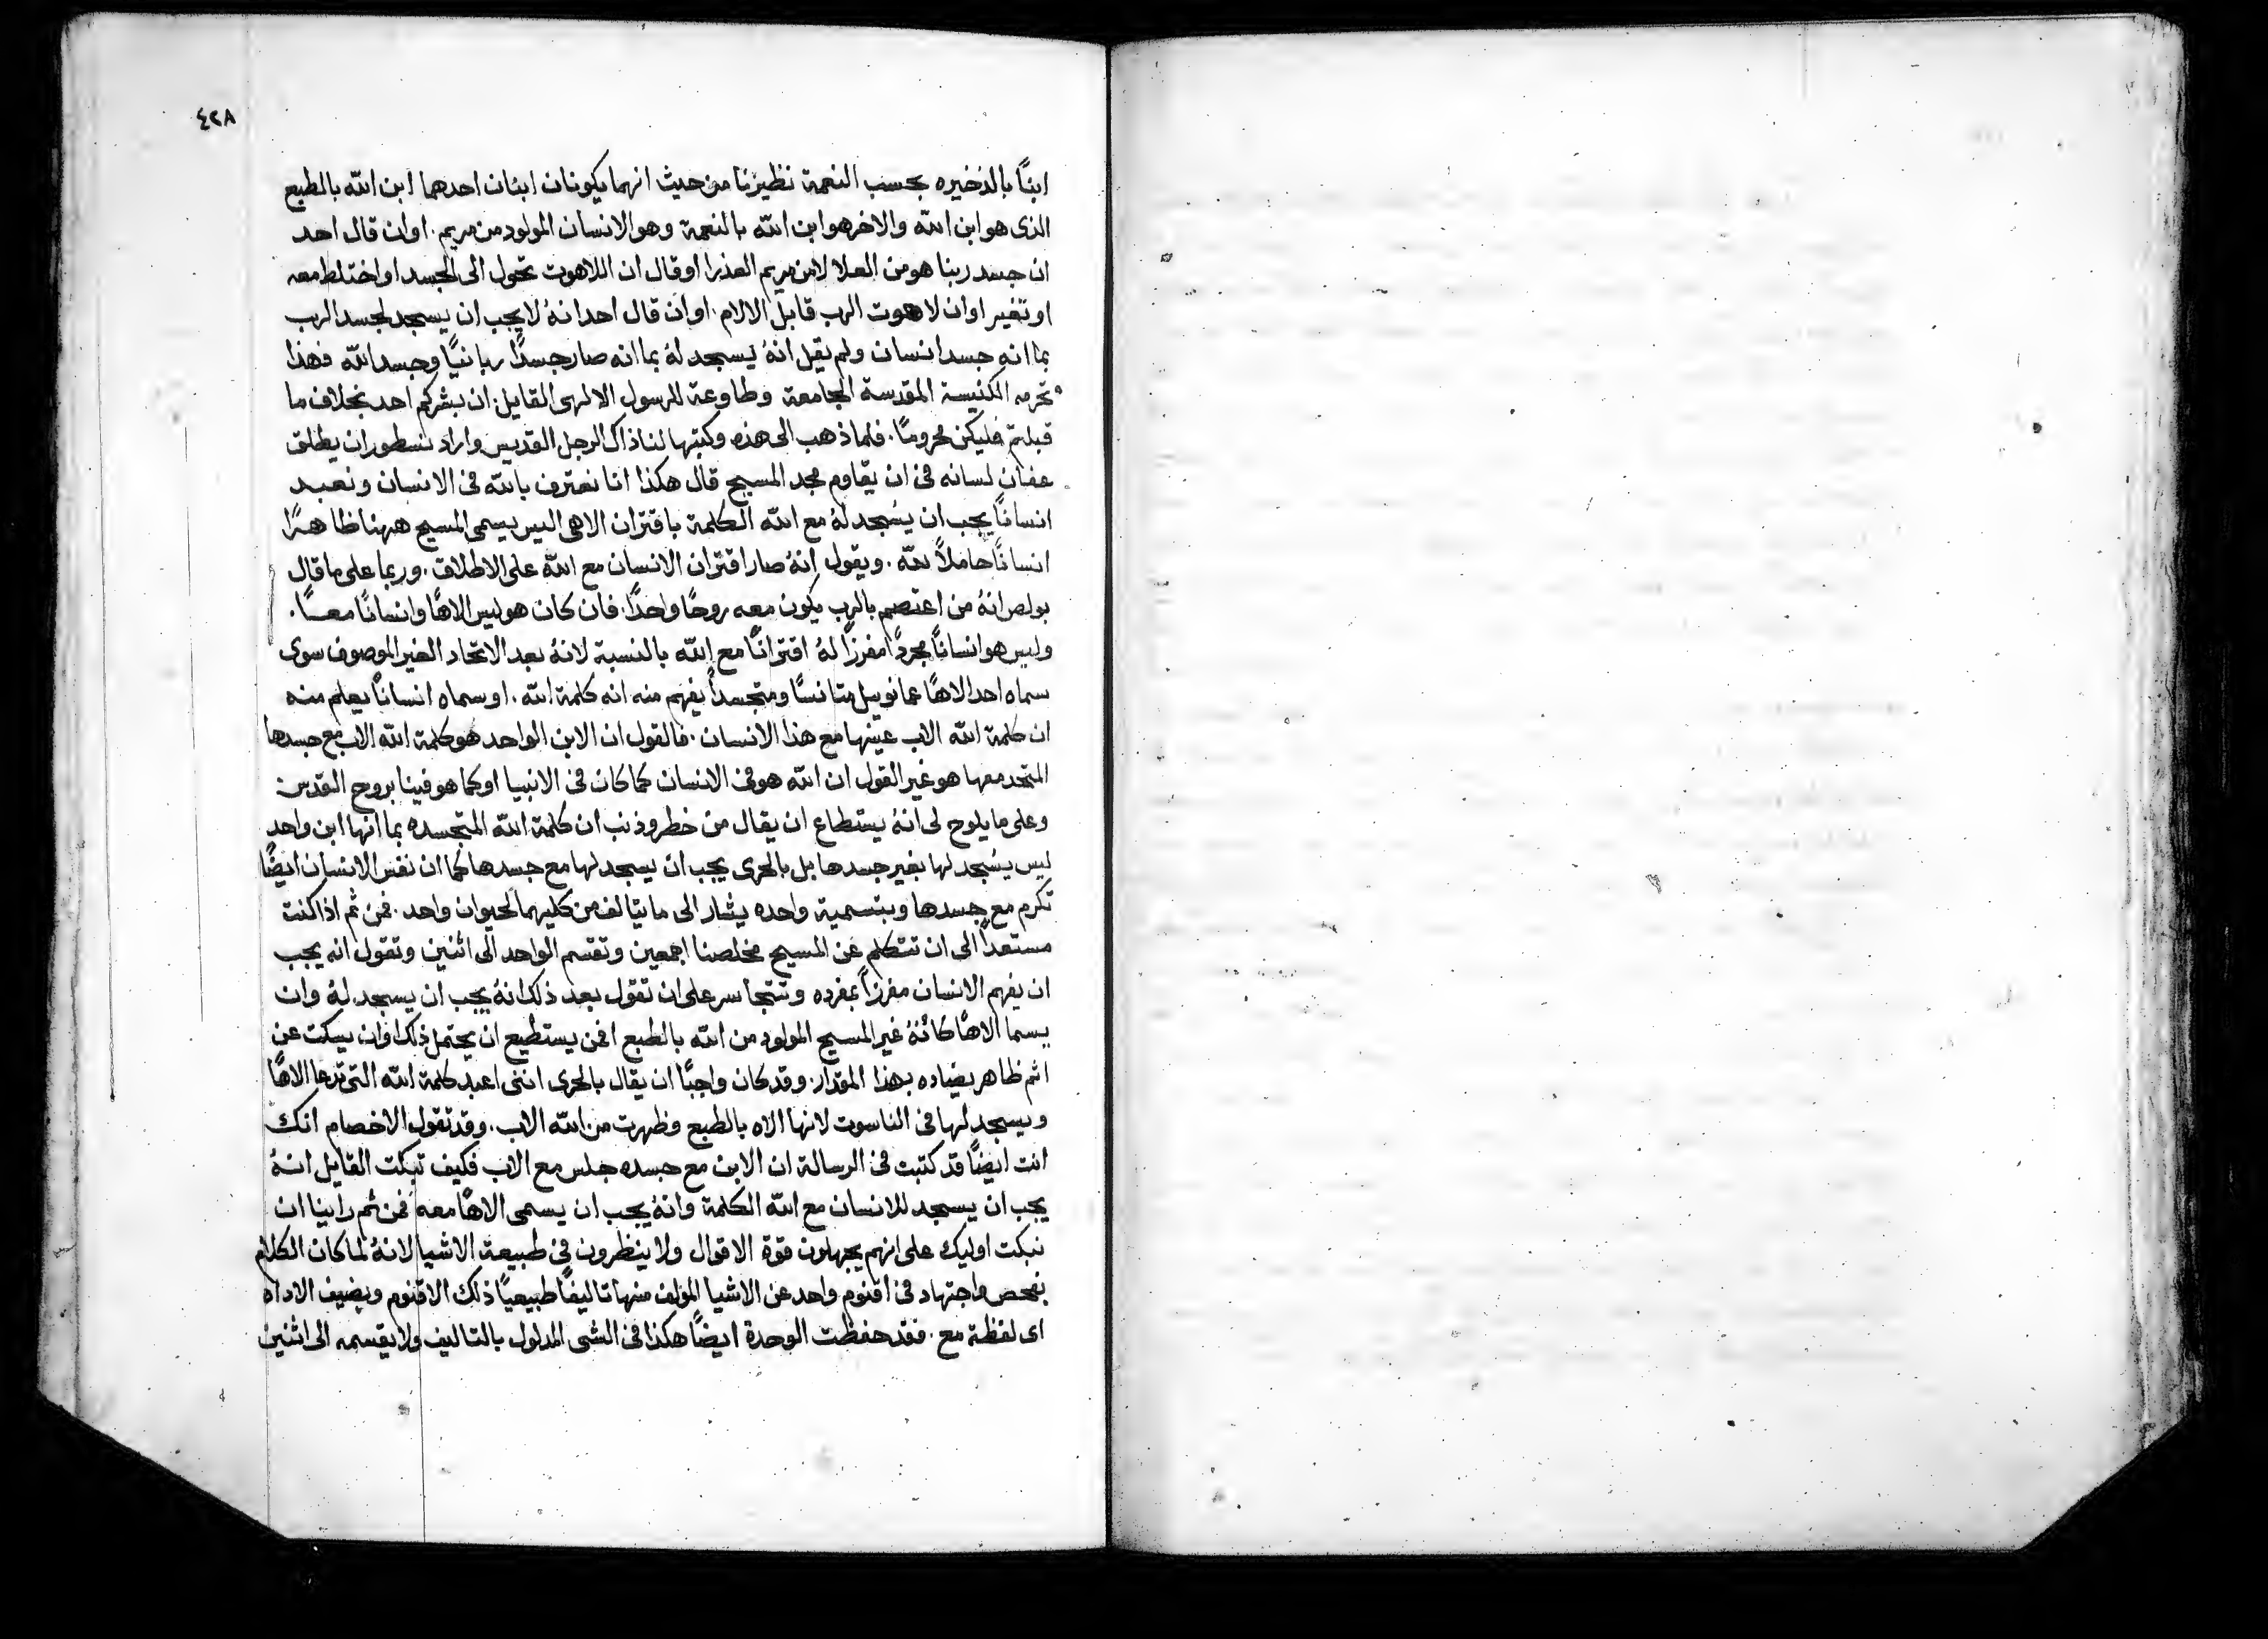 ٤٢٨
ابنًا بالذخيره بحسب النعمة نظيرنا من حيث انهما يكونان ابنان احدهما ابن الله بالطبع
الذى هو ابن الله والاخر هو ابن الله بالنعمة وهو الانسان المولود من مريم. او ان قال احد
ان جسد ربنا هو من العلا لا من مريم العذرا او قال ان اللاهوت تحول الى الجسد او اختلط معه
او تغير او ان لاهوت الرب قابل الالام. او ان قال احد انهُ لا يجب ان يسجد لجسد الرب
بما انه جسد انسان ولم يقل انهُ يسجد لهُ بما انه صار جسدًا ربانيًا وجسد الله فهذا
تحرمه الكنيسة المقدسة الجامعة وطاوعة للرسول الالهى القايل. ان بشركم احد بخلاف ما
قبلتم فليكن محرومًا. فلما ذهب الى هذه وكتبها لنا ذاك الرجل القديس واراد نسطور ان يطلق
عنان لسانه فى ان يقاوم مجد المسيح قال هكذا انا نعترف بالله فى الانسان ونعبد
انسانًا يجب ان يُسجد لهُ مع الله الكلمة باقتران الاهى اليس يسمى المسيح ههنا ظاهرًا
انسانًا حاملاً لله. ويقول انهُ صار اقتران الانسان مع الله على الاطلاق. وربما على ما قال
بولص انهُ من اعتصم بالرب يكون معه روحًا واحدًا. فان كان هو ليس الاهًا وانسانًا معـًا.
وليس هو انسانًا مجردًا مفرزًا لهُ اقترانًا مع الله بالنسبة لانهُ بعد الاتحاد الغير الموصوف سوى
سماه احد الاهًا عمانوييل متانسًا ومتجسدًا يفهم منه انه كلمة الله. او سماه انسانًا يعلم منه
ان كلمة الله الاب عينها مع هذا الانسان. فالقول ان الابن الواحد هو كلمة الله الاب مع جسدها
المتحد معها هو غير القول ان الله هو فى الانسان كما كان فى الانبيا او كما هو فينا بروح القدس
وعلى ما يلوح لى انهُ يستطاع ان يقال من خطر وذنب ان كلمة الله المتجسده بما انها ابن واحد
ليس يُسجد لها بغير جسدها بل بالحرى يجب ان يسجد لها مع جسدها كما ان نفس الانسان ايضًا
تكرم مع جسدها وبتسمية واحده يشار الى ما يتالف من كليهما لحيوان واحد. فمن ثم اذا كنت
مستعدًا الى ان تتكلم عن المسيح مخلصنا اجمعين وتقسم الواحد الى اثنين وتقول انه يجب
ان يفهم الانسان مفرزًا بمفرده وتتجاسر على ان تقول بعد ذلك انهُ يجب ان يسجد لهُ وان
يسما الاهًا كانهُ غير المسيح المولود من الله بالطبع افمن يستطيع ان يحتمل ذلك او ان يسكت عن
اثم ظاهر بضاده بهذا المقدار. وقد كان واجبًا ان يقال بالحرى اننى اعبد كلمة الله التى تدعا الاهًا
ويسجد لها فى الناسوت لانها الاه بالطبع وظهرت من الله الاب. وقد تقول الاخصام انك
انت ايضًا قد كتبت فى الرسالة ان الابن مع جسده جلس مع الاب فكيف تبكت القايل انهُ
يجب ان يسجد للانسان مع الله الكلمة وانهُ يجب ان يسمى الاهًا معه فمن ثم راينا ان
نبكت اوليك على انهم يجهلون قوة الاقوال ولا ينظرون فى طبيعة الاشيا لانهُ لما كان الكلام
بفحص واجتهاد فى اقنوم واحد عن الاشيا المولف منها تاليفًا طبيعيًا ذلك الاقنوم ويضيف الاداه
اى لفظة مع. فقد حفظت الوحدة ايضًا هكذا فى الشى المدلول بالتاليف ولا يقسمه الى اثنين